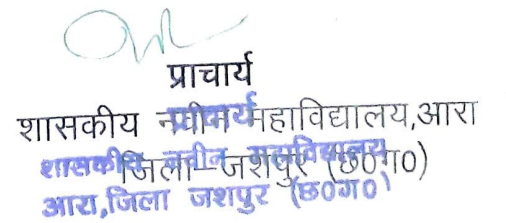 प्राचार्य
शासकीय नवीन महाविद्यालय,आरा
जिला–जशपुर (छ०ग०)
प्राचार्य
शासकीय नवीन महाविद्यालय
आरा,जिला जशपुर (छ०ग०)